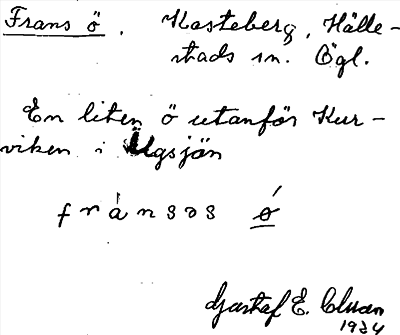 Frans ö. Kasteberg, Hälle-
stads sn. Ögl.
En liten ö utanför Kur-
viken i Ålgsjön
fránsos ǿ
Gustaf E. Cluan
1934